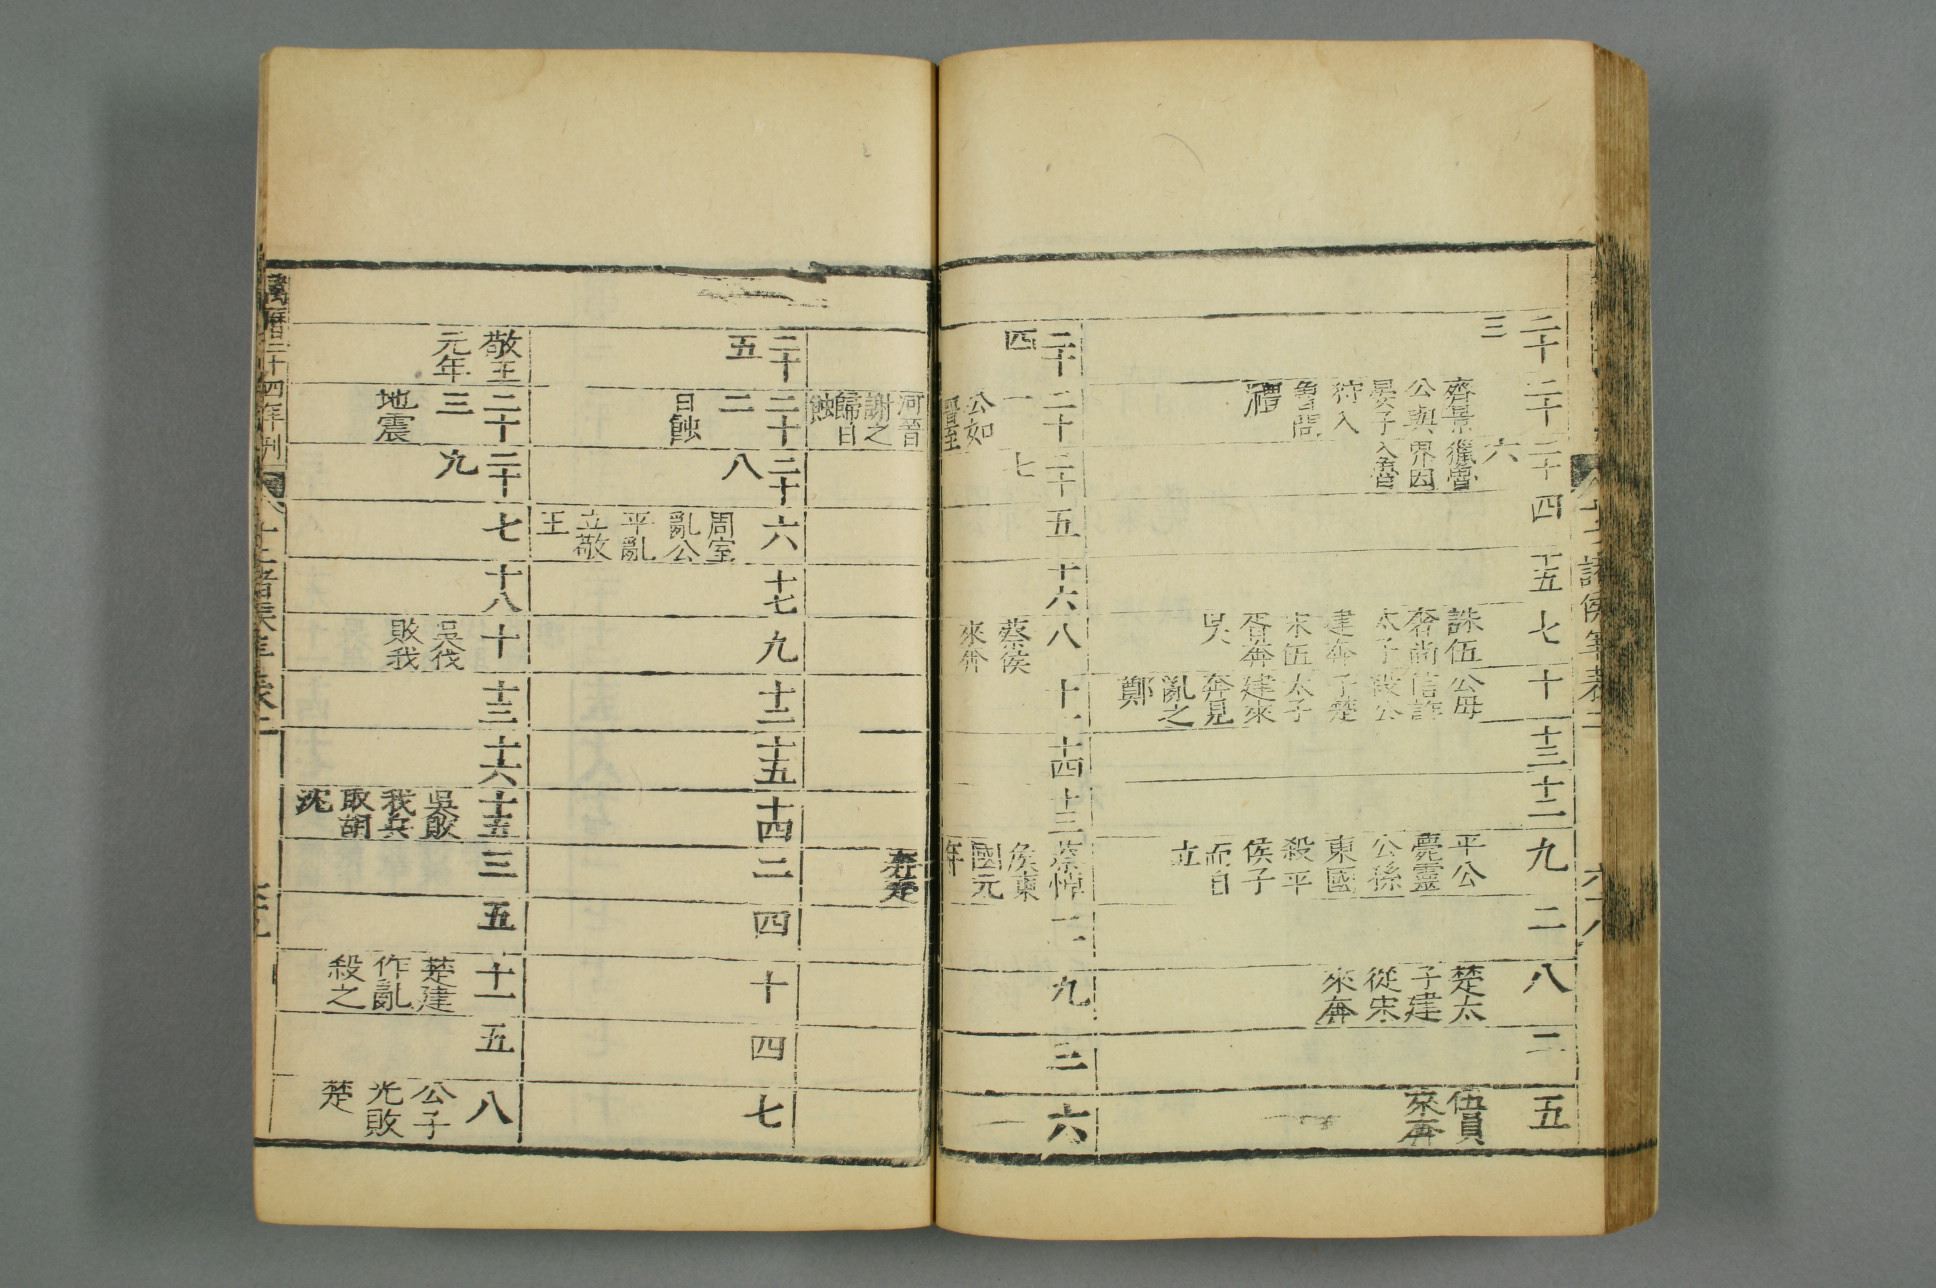 十二諸侯年表二
二十
三
二十
齊景
公與
晏子
狩入
魯問
禮
二十
六
獵魯
界因
入魯
四
十五
七
誅伍
奢尚
太子
建奔
宋伍
胥奔
吳
十
公毋
信詐
殺公
子楚
太子
建來
奔見
亂之
鄭
十三
十二
九
平公
薨靈
公孫
東國
殺平
侯子
而自
立
二
八
楚太
子建
從宋
來奔
二
五
伍員
來奔
二十
四
二十
一
公如
晉至
河晉
謝之
歸日
蝕
二十
七
五
十六
八
蔡侯
來奔
十一
十四
十三
蔡悼
侯東
國元
年
奔楚
九
三
六
二十
五
二十
二
日蝕
二十
八
六
周室
亂公
平亂
立敬
王
十七
九
十二
十五
十四
二
四
十
四
七
敬王
元年
二十
三
地震
二十
九
七
十八
十
吳伐
敗我
十三
十六
十五
吳敗
我兵
取胡
沈
三
五
十一
楚建
作亂
殺之
五
八
公子
光敗
楚
萬曆二十四年刊
十二諸侯年表二